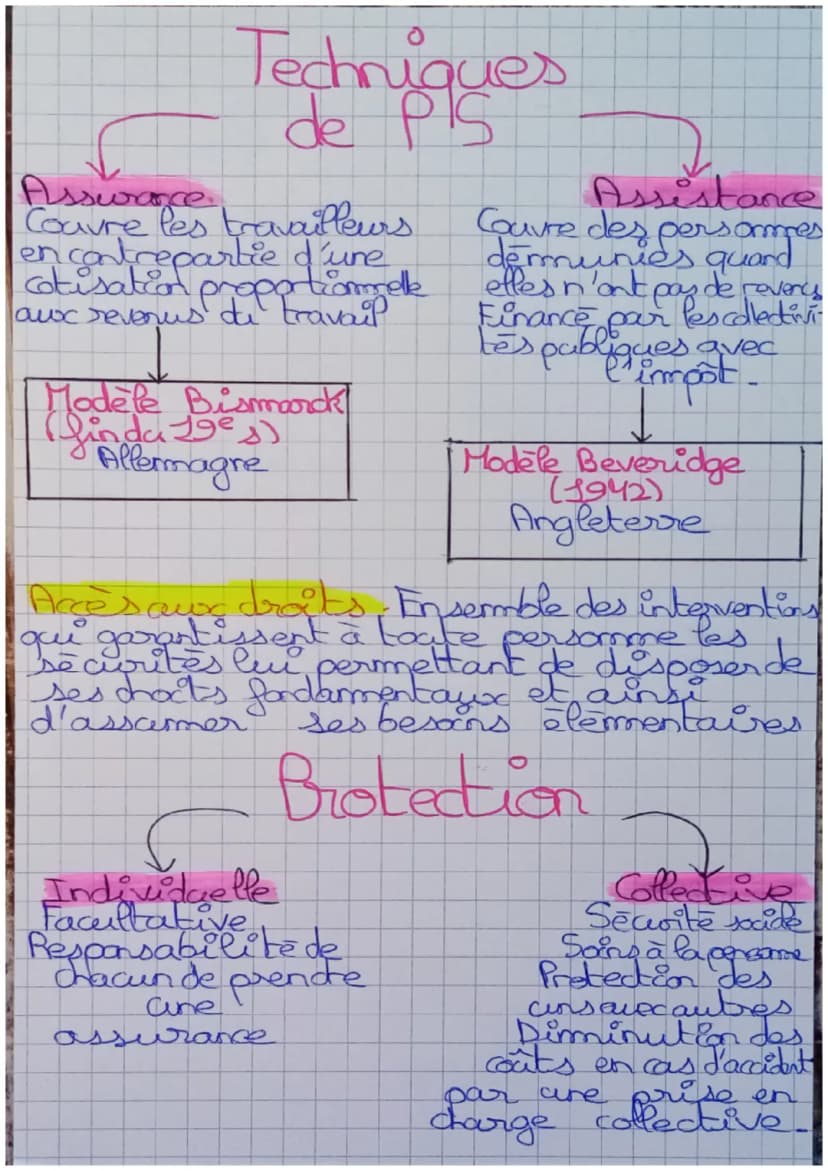 Techniques
de PS
Assurance
Couvre les travailleurs
en contrepartie d'une
cotisation proportionnelle
aux revenus du travail
Modèle Bismarck
(fin du 19e s)
Allemagne
Assistance
Couvre des personnes
démunies quand
elles n'ont pas de revenus
Financé par les collectivi-
tés publiques avec
l'impôt.
Modèle Beveridge
(1942)
Angleterre
Accès aux droits. Ensemble des interventions
qui garantissent à toute personne les
sécurités lui permettant de disposer de
ses droits fondamentaux et ainsi
d'assumer ses besoins élémentaires
Protection
Individuelle
Facultative
Responsabilité de
chacun de prendre
une
assurance
Collective
Sécurité sociale
Soins à la personne
Protection des
uns avec autres
Diminution des
coûts en cas d'accident
par une prise en
charge collective.